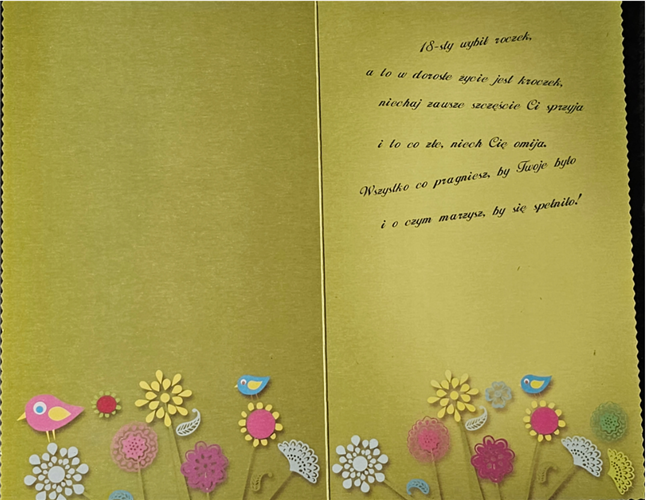 18-sty wybił roczek,
a to w dorosłe życie jest kroczek,
niechaj zawsze szczęście Ci sprzyja
i to co złe, niech Cię omija.
Wszystko co pragniesz, by Twoje było
i o czym marzysz, by się spełniło!